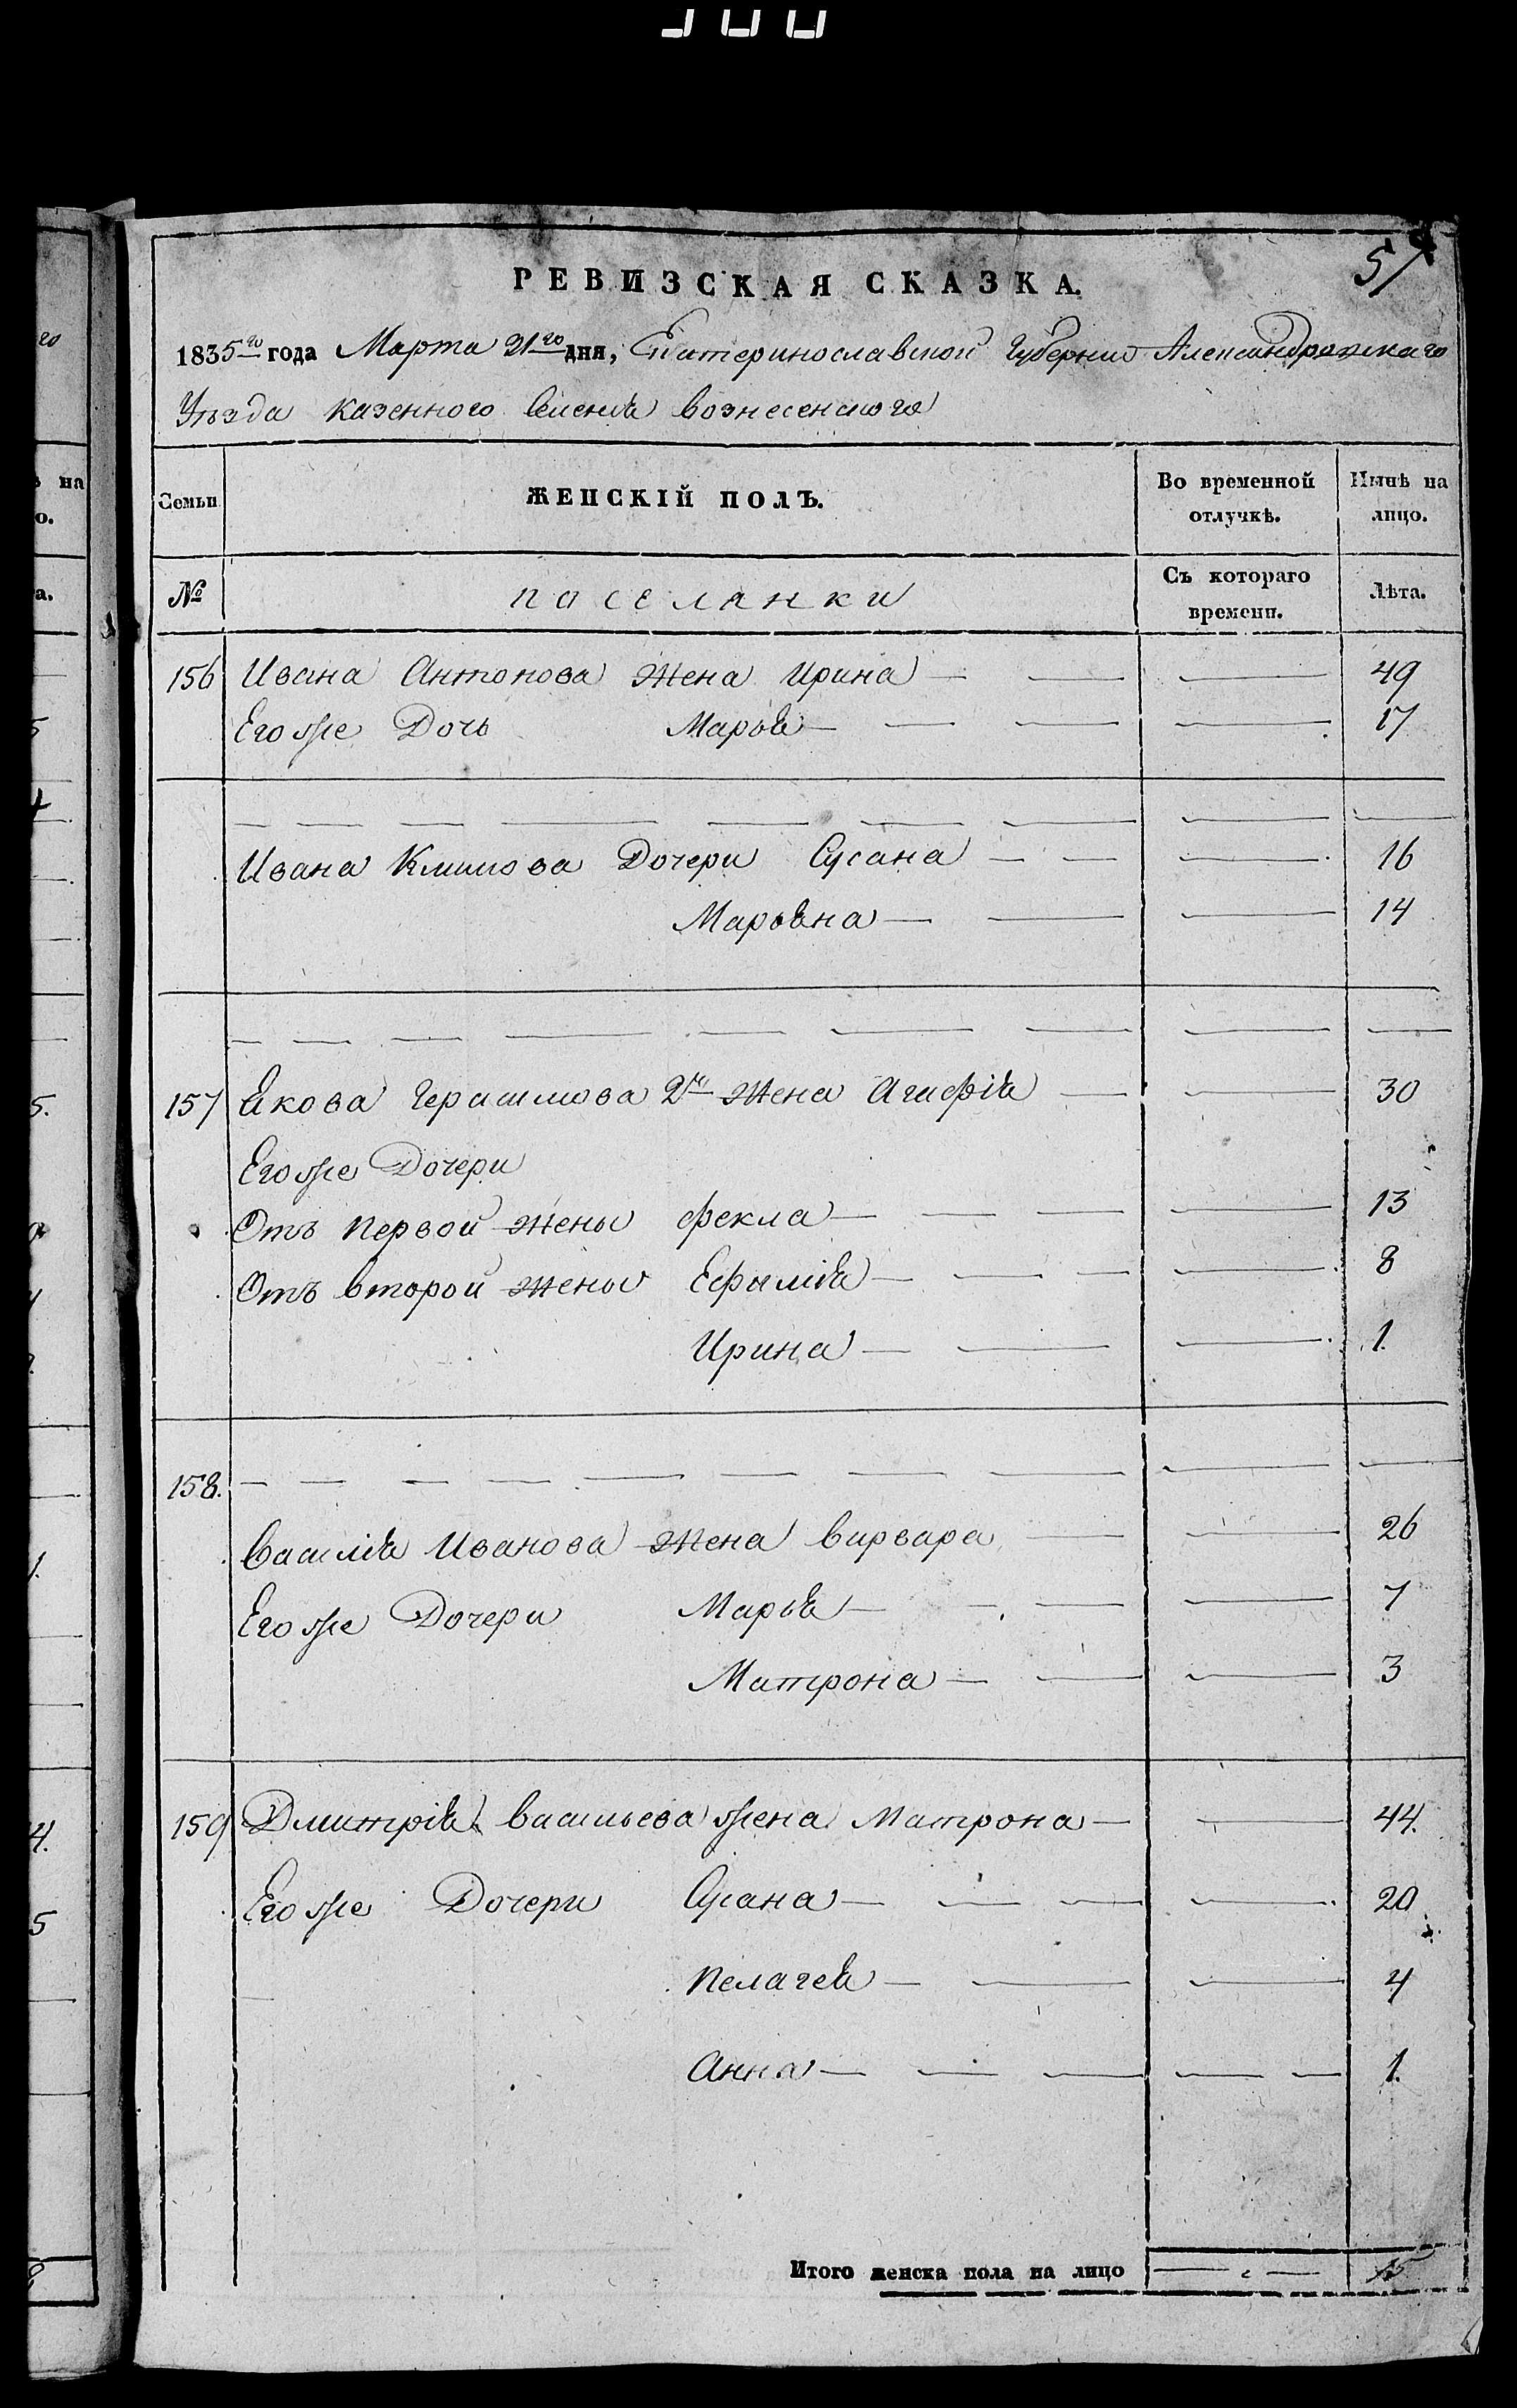 57
РЕВИЗСКАЯ СКАЗКА.
1835го года Марта 21го дня, Екатеринославской Губернии Александровскаго
Уѣзда казенного Селенія вознесенского
Семьи ЖЕНСКІЙ ПОЛЪ. Во временной отлучкѣ. Нынѣ на лицо.
№ поселянки Съ котораго времени. Лѣта.
156 Ивана Антонова жена Ирина 49
Егоже Дочь Марья 17
Ивана Климова Дочери Сусана 16
Марьяна 14
157 Якова Герасимова 2я жена Агафія 30
Егоже Дочери
Отъ первой жены фекла 13
Отъ второй жены Ефимія 8
Ирина 1.
158.
Василія Иванова жена варвара 26
Егоже Дочери Марья 7
Матрона 3
159 Дмитрія васильева жена Матрона 44.
Егоже Дочери Сусана 20
пелагея 4
Анна 1.
Итого женска пола на лицо 15